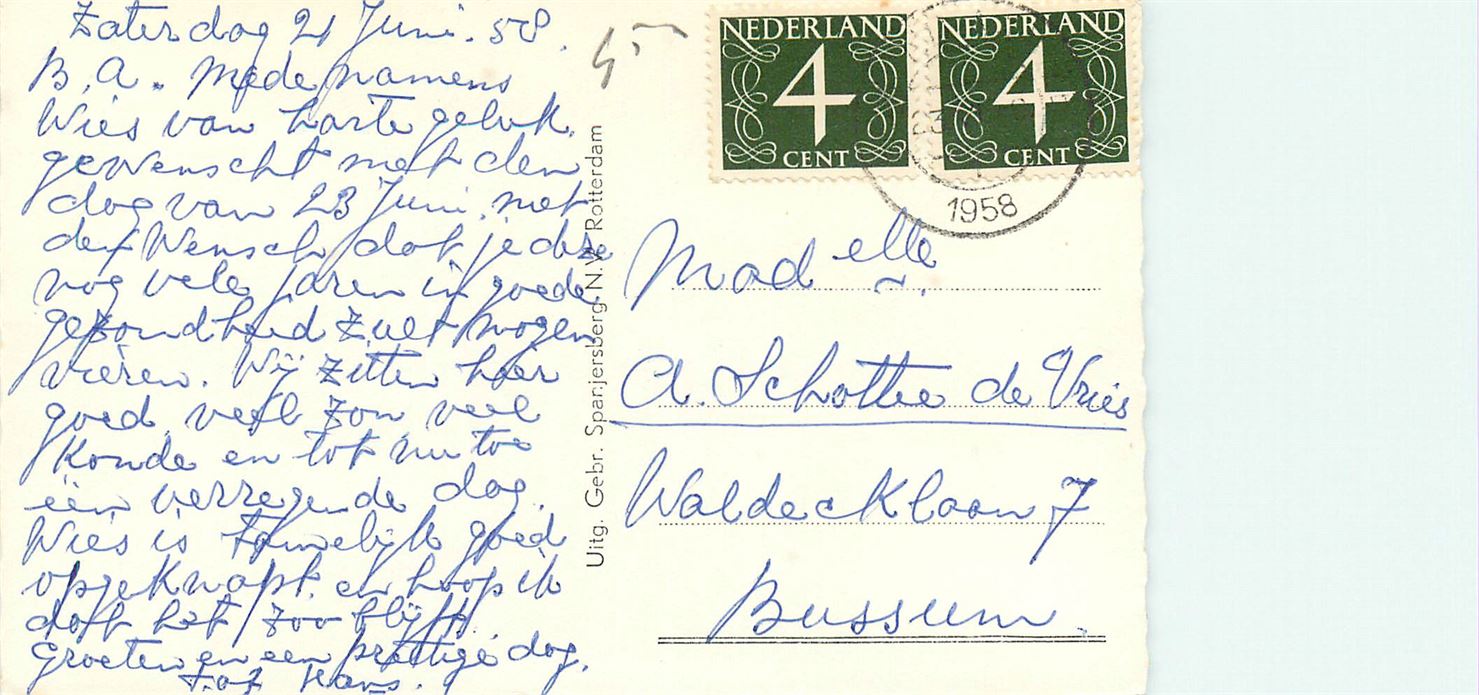 Zaterdag 21 Juni. 58.
B. A. Mede namens
Wies van harte geluk
gewenscht met den
dag van 23 Juni, met
den Wensch dat je deze
nog vele jaren in goede
gezondheid zult mogen
vieren. Wij zitten hier
goed, veel zon, veel
Koude en tot nu toe
één verregende dag.
Wies is tamelijk goed
opgeknapt. en hoop ik
dat het zoo blijft.
Groeten en een prettige dag.
Hans.
NEDERLAND
4
CENT
NEDERLAND
4
CENT
1958
Uitg. Gebr. Spanjersberg N.V. Rotterdam
Mad elle
A. Schottee de Vries
Waldecklaan 7
Bussum.